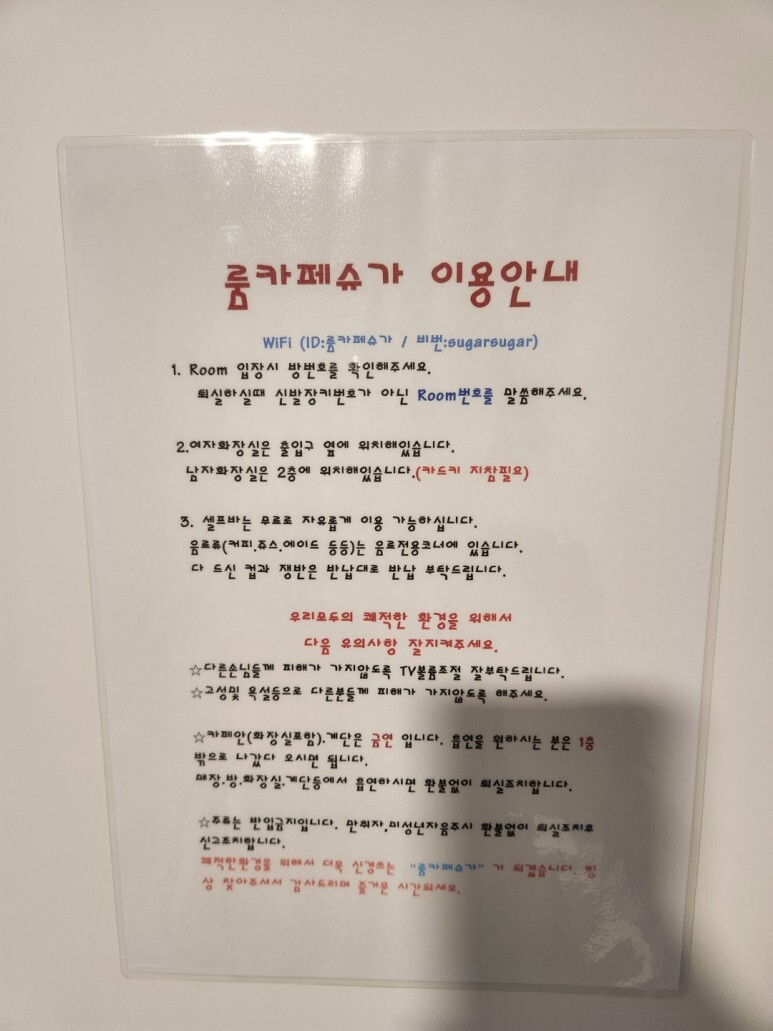 룸카페슈가 이용안내
WiFi (ID:룸카페슈가 / 비번:sugarsugar)
1. Room 입장시 방번호를 확인해주세요.
퇴실하실때 신발장키번호가 아닌 Room번호를 말씀해주세요.
2.여자화장실은 출입구 옆에 위치해있습니다.
남자화장실은 2층에 위치해있습니다.(카드키 지참필요)
3. 셀프바는 무료로 자유롭게 이용 가능하십니다.
음료류(커피.쥬스.에이드 등등)는 음료전용코너에 있습니다.
다 드신 컵과 쟁반은 반납대로 반납 부탁드립니다.
우리모두의 쾌적한 환경을 위해서
다음 유의사항 잘지켜주세요.
☆다른손님들께 피해가 가지않도록 TV볼륨조절 잘부탁드립니다.
☆고성및 욕설등으로 다른분들께 피해가 가지않도록 해주세요.
☆카페안(화장실포함).계단은 금연 입니다. 흡연을 원하시는 분은 1층
밖으로 나갔다 오시면 됩니다.
매장.방.화장실.계단등에서 흡연하시면 환불없이 퇴실조치합니다.
☆주류는 반입금지입니다. 만취자.미성년자음주시 환불없이 퇴실조치후
신고조치합니다.
쾌적한환경을 위해서 더욱 신경쓰는 "룸카페슈가" 가 되겠습니다. 항
상 찾아주셔서 감사드리며 즐거운 시간되세요.